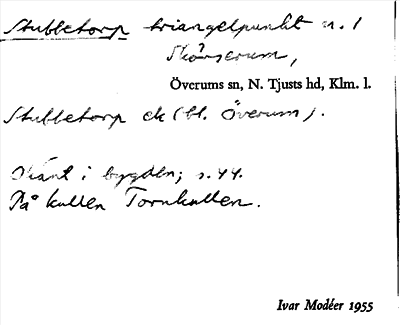 Stubbetorp triangelpunkt n. 1
Skönserum,
Överums sn, N. Tjusts hd, Klm. l.
Stubbetorp ek (bl. Överum).
känt i bygden; s. 44.
På kullen Tornkullen.
Ivar Modéer 1955